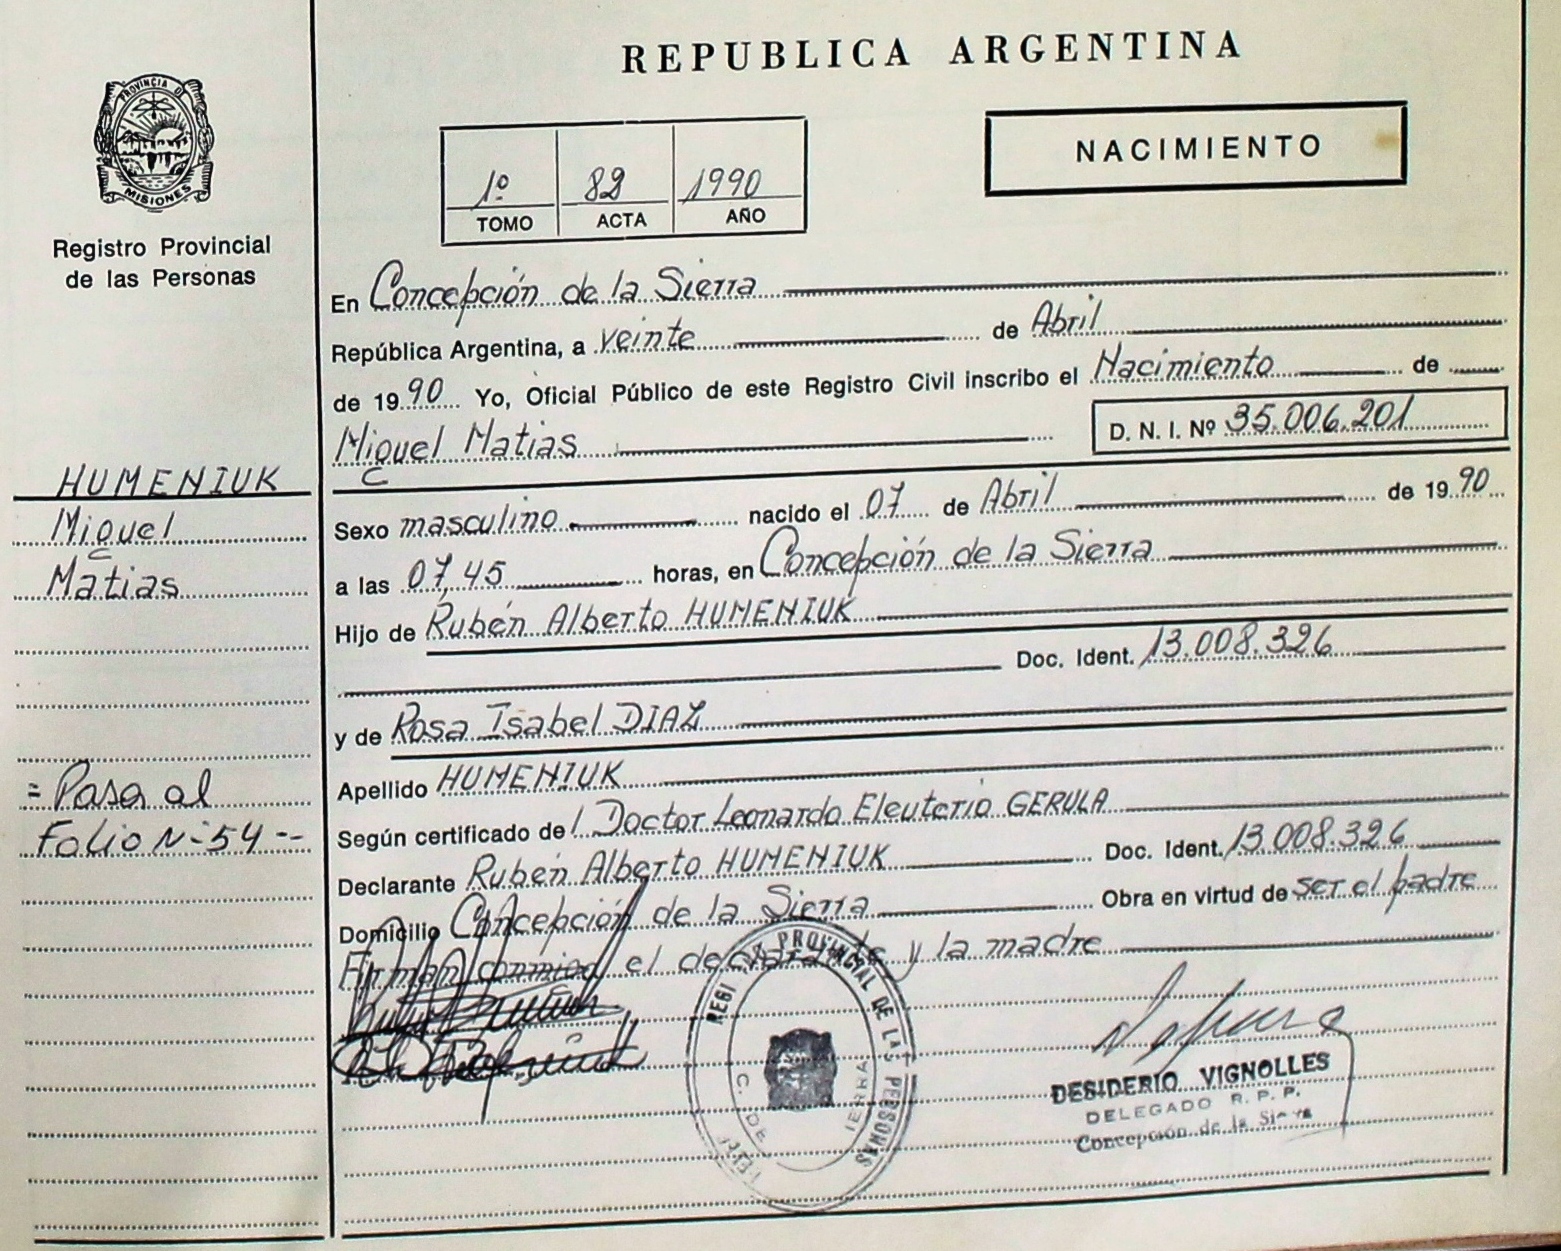 REPUBLICA ARGENTINA
PROVINCIA D
MISIONES
Registro Provincial
de las Personas
1º 82 1990
TOMO ACTA AÑO
NACIMIENTO
En Concepción de la Sierra
República Argentina, a veinte de Abril
de 1990 Yo, Oficial Público de este Registro Civil inscribo el Nacimiento de
Miguel Matias D. N. I. Nº 35.006.201
HUMENIUK
Miguel
Matias
Sexo masculino nacido el 07 de Abril de 1990
a las 07,45 horas, en Concepción de la Sierra
Hijo de Rubén Alberto HUMENIUK
Doc. Ident. 13.008.326
y de Rosa Isabel DIAZ
= Pasa al
Folio N-54--
Apellido HUMENIUK
Según certificado del Doctor Leonardo Eleuterio GERULA
Declarante Rubén Alberto HUMENIUK Doc. Ident. 13.008.326
Domicilio Concepción de la Sierra Obra en virtud de ser el padre
Firman conmigo el declarante y la madre
PROVINCIAL DE LAS PERSONAS
C. DE IERRA
DESIDERIO VIGNOLLES
DELEGADO R. P. P.
Concepción de la Sierra